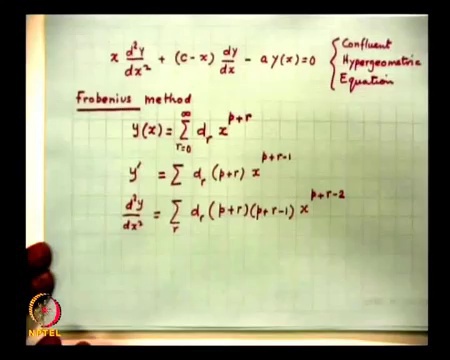 x d²y/dx² + (c-x) dy/dx - a y(x) = 0 { Confluent Hypergeometric Equation
Frobenius method
y(x) = Σ_{r=0}^{∞} d_r x^{p+r}
y' = Σ d_r (p+r) x^{p+r-1}
d²y/dx² = Σ_r d_r (p+r)(p+r-1) x^{p+r-2}
NPTEL